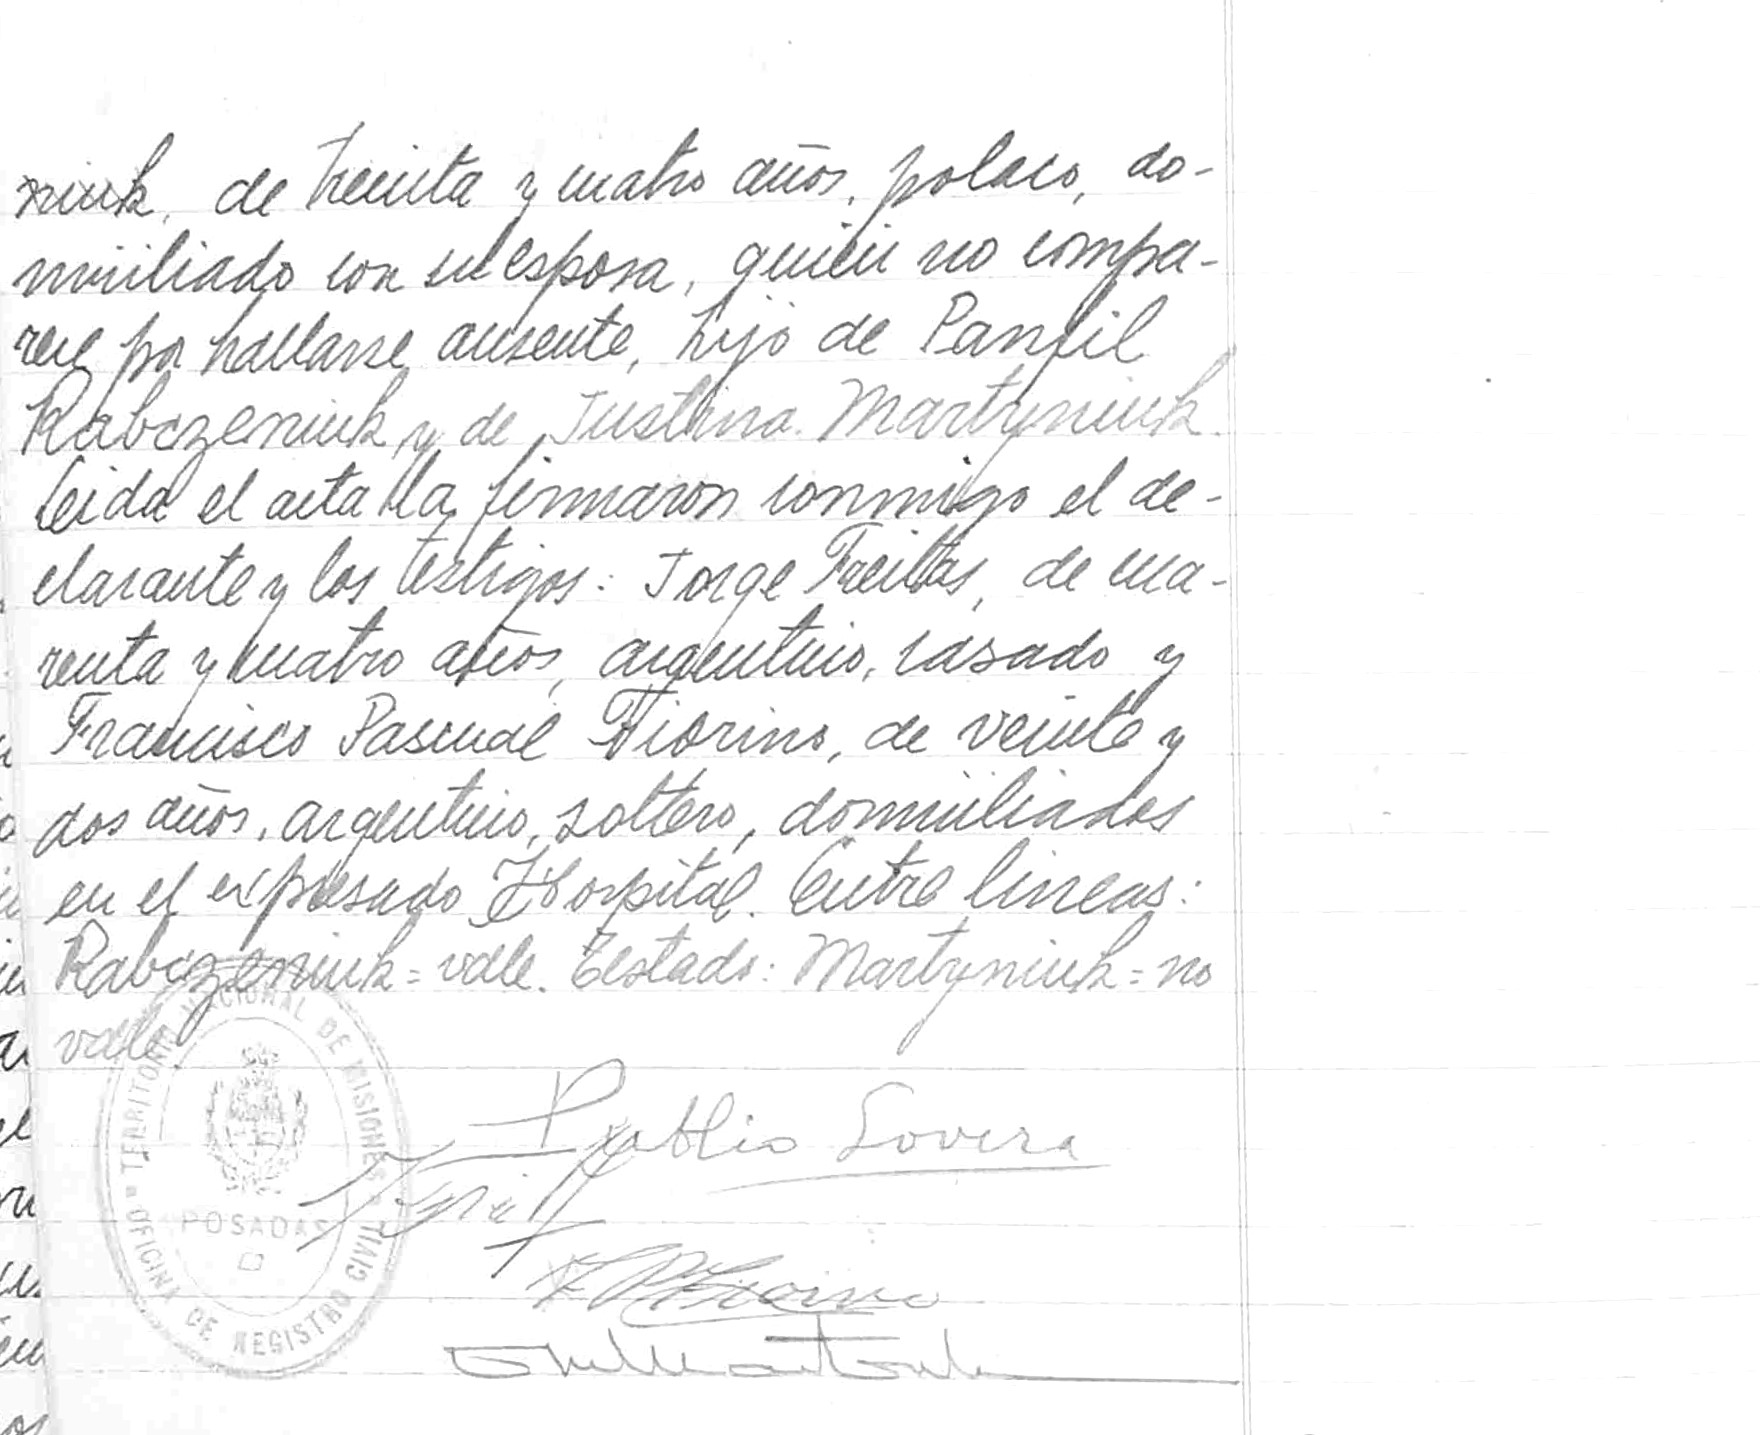 niuk, de treinta y cuatro años, polaco, do-
miciliado con su esposa, quien no compa-
rece por hallarse ausente, hijo de Panfil
Rabczeniuk y de Justina Martyniuk.
Leida el acta la firmaron conmigo el de-
clarante y los testigos: Jorge Freitas, de cua-
renta y cuatro años, argentino, casado y
Francisco Pascual Fiorino, de veinte y
dos años, argentino, soltero, domiciliados
en el expresado Hospital. Entre lineas:
Rabczeniuk = vale. Testado: Martyniuk = no
vale
TERRITORIO NACIONAL DE MISIONES
POSADAS
OFICINA DE REGISTRO CIVIL
Pablio Lovera
F P Fiorino